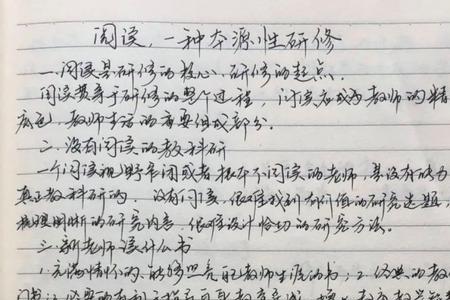 阅读,一种本源性研修
一、阅读是研修的核心、研修的起点.
阅读贯穿于研修的整个过程,阅读应成为教师的精
底色,教师生活的重要组成部分.
二、没有阅读的教科研
一个阅读视野牢闭或者根本不阅读的老师,是没有成为
真正教科研的.没有阅读,很难找到有价值的研究选题,
清晰的研究内容,很难设计恰切的研究方法.
三、新老师读什么书
1.充满情怀的、能够照亮自己教师生涯的书;2.经典的教